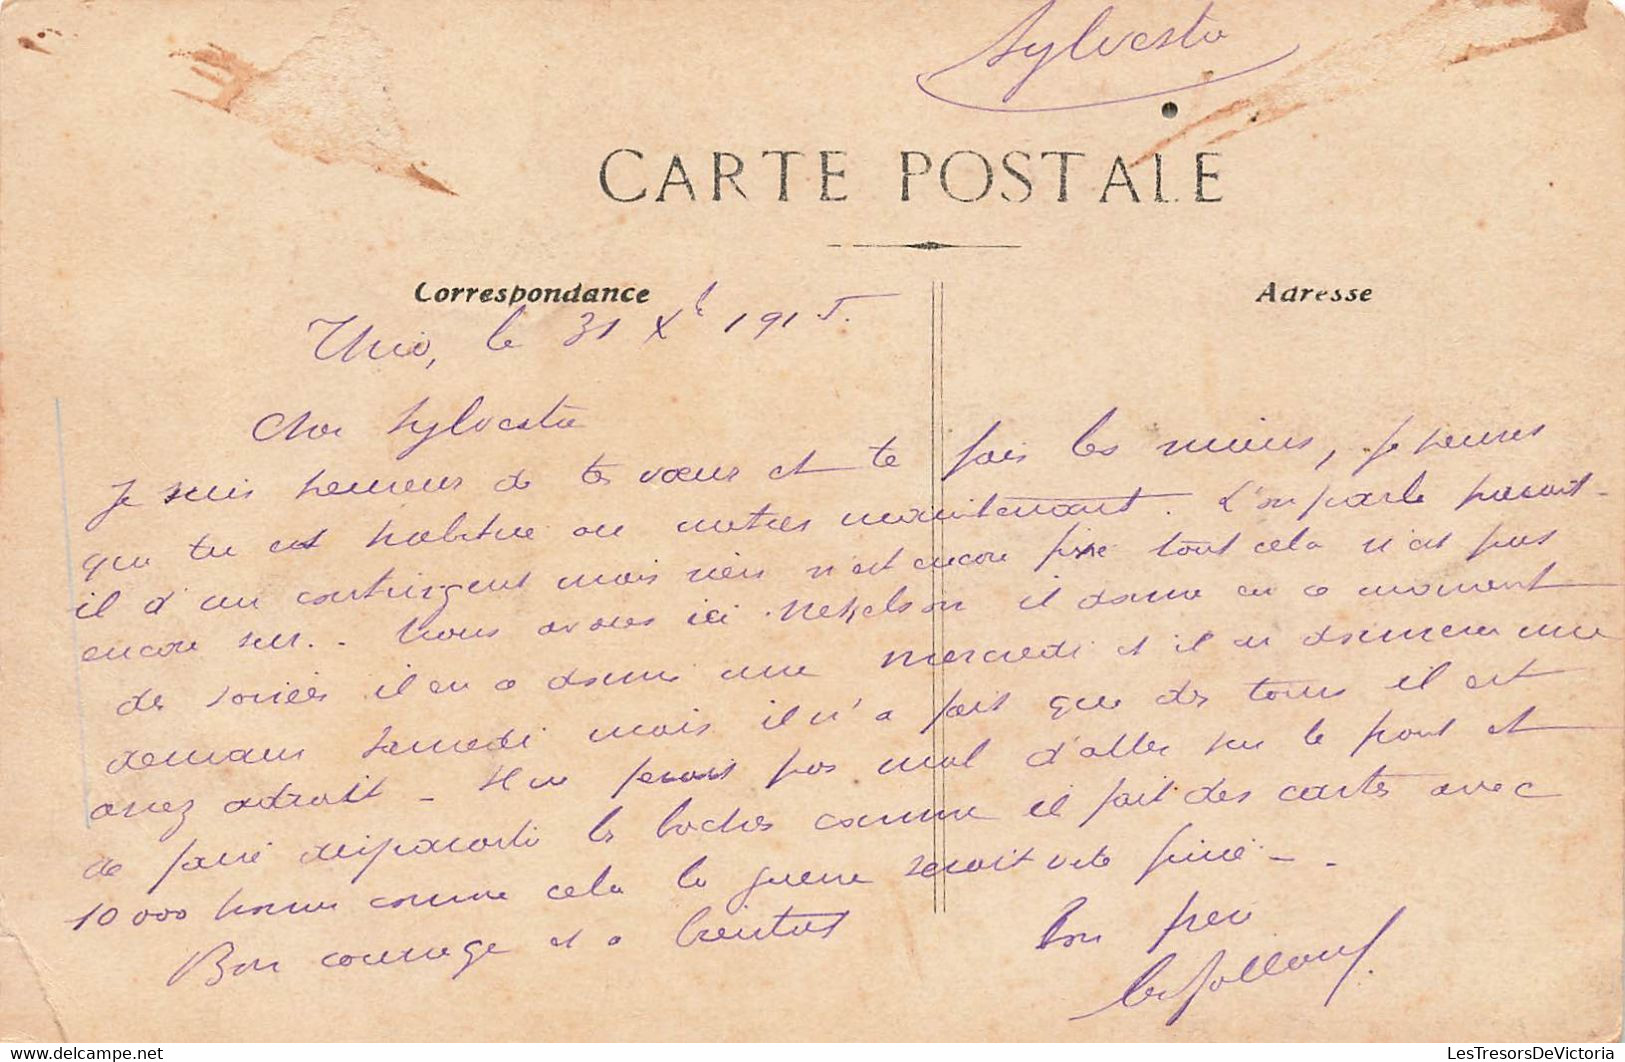 Sylvestre
CARTE POSTALE
Correspondance
Adresse
Thio, le 31 Xbre 1915.
Cher Sylvestre
Je suis heureux de tes vœux et te fais les miens, je pense
que tu es habitué au maintenant. L'on parle parait-
il d'un contingent mais rien n'est encore fixé tout cela n'est pas
encore sur. - Nous avons ici Nekelson il donne en ce moment
des soirées il en a donné une mercredi et il en donnera une
demain samedi mais il n'a fait que des tours il est
assez adroit - Il ne ferait pas mal d'aller sur le front et
de faire disparaitre les boches comme il fait des cartes avec
10 000 hommes comme cela la guerre serait vite finie - -
Bon courage et a bientot
Ton frere
LesTresorsDeVictoria
LesTresorsDeVictoria.com